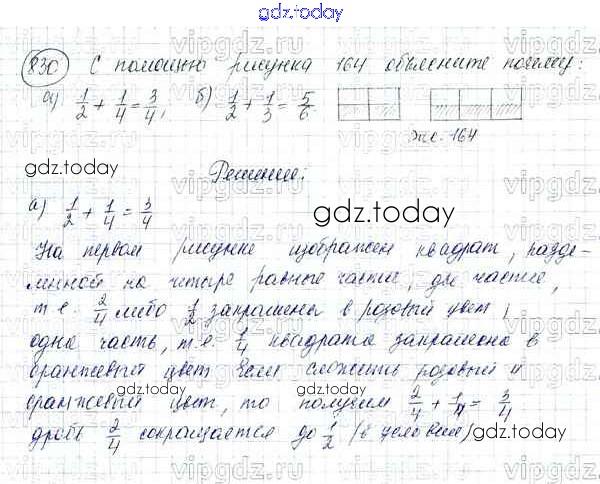 gdz.today
830 С помощью рисунка 164 объясните почему:
а) 1/2 + 1/4 = 3/4, б) 1/2 + 1/3 = 5/6
Рис. 164
gdz.today
Решение:
а) 1/2 + 1/4 = 3/4
gdz.today
На первом рисунке изображен квадрат, разде-
ленной на четыре равные части, две части,
т.е. 2/4 либо 1/2 закрашены в розовый цвет,
одна часть, т.е. 1/4 квадрата закрашена в
оранжевый цвет Если сложить розовый и
gdz.today gdz.today
оранжевый цвет, то получим 2/4 + 1/4 = 3/4
дробь 2/4 сокращается до 1/2 (в условии)
gdz.today
vipgdz.ru